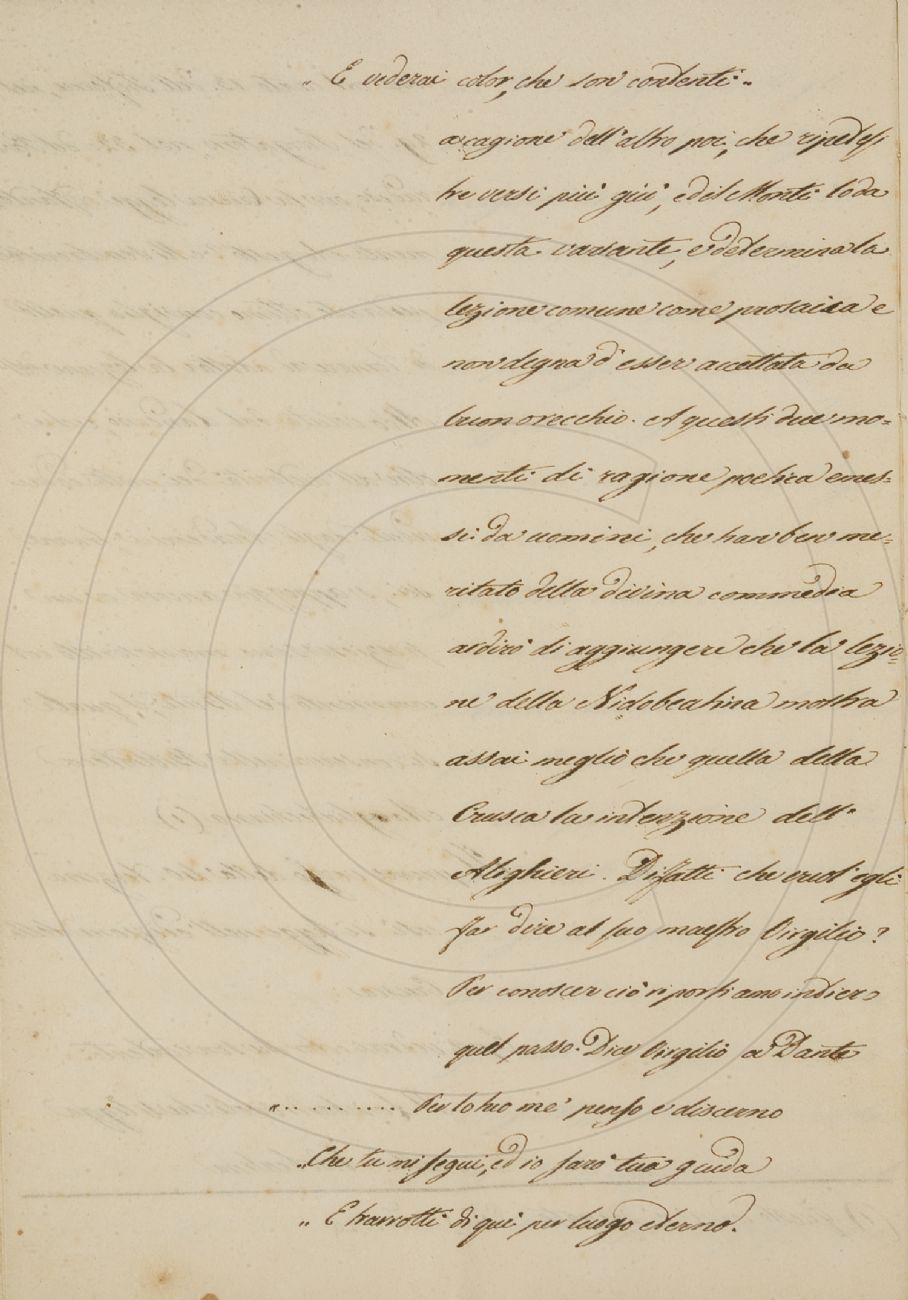 „ E vederai color, che son contenti „
a cagione dell'altro poi, che ripetesi
tre versi più giù, ed il Monti loda
questa variante, e determina la
lezione comune come prosaica e
non degna d'esser accettata da
buon orecchio. A questi due mo=
menti di ragione poetica emes=
si da uomini, che han ben me=
ritato della divina commedia
ardirò di aggiungere che la lezio=
ne della Nidobeatina mostra
assai meglio che quella della
Crusca la intenzione dell'
Alighieri. Difatti che vuol egli
far dire al suo maestro Virgilio?
Per conoscer ciò riportiamo indier=
quel passo. Dice Virgilio a Dante
„ .......... Per lo tuo me' penso e discerno
„ Che tu mi segui, ed io sarò tua guida
„ E trarrotti di qui per luogo eterno.